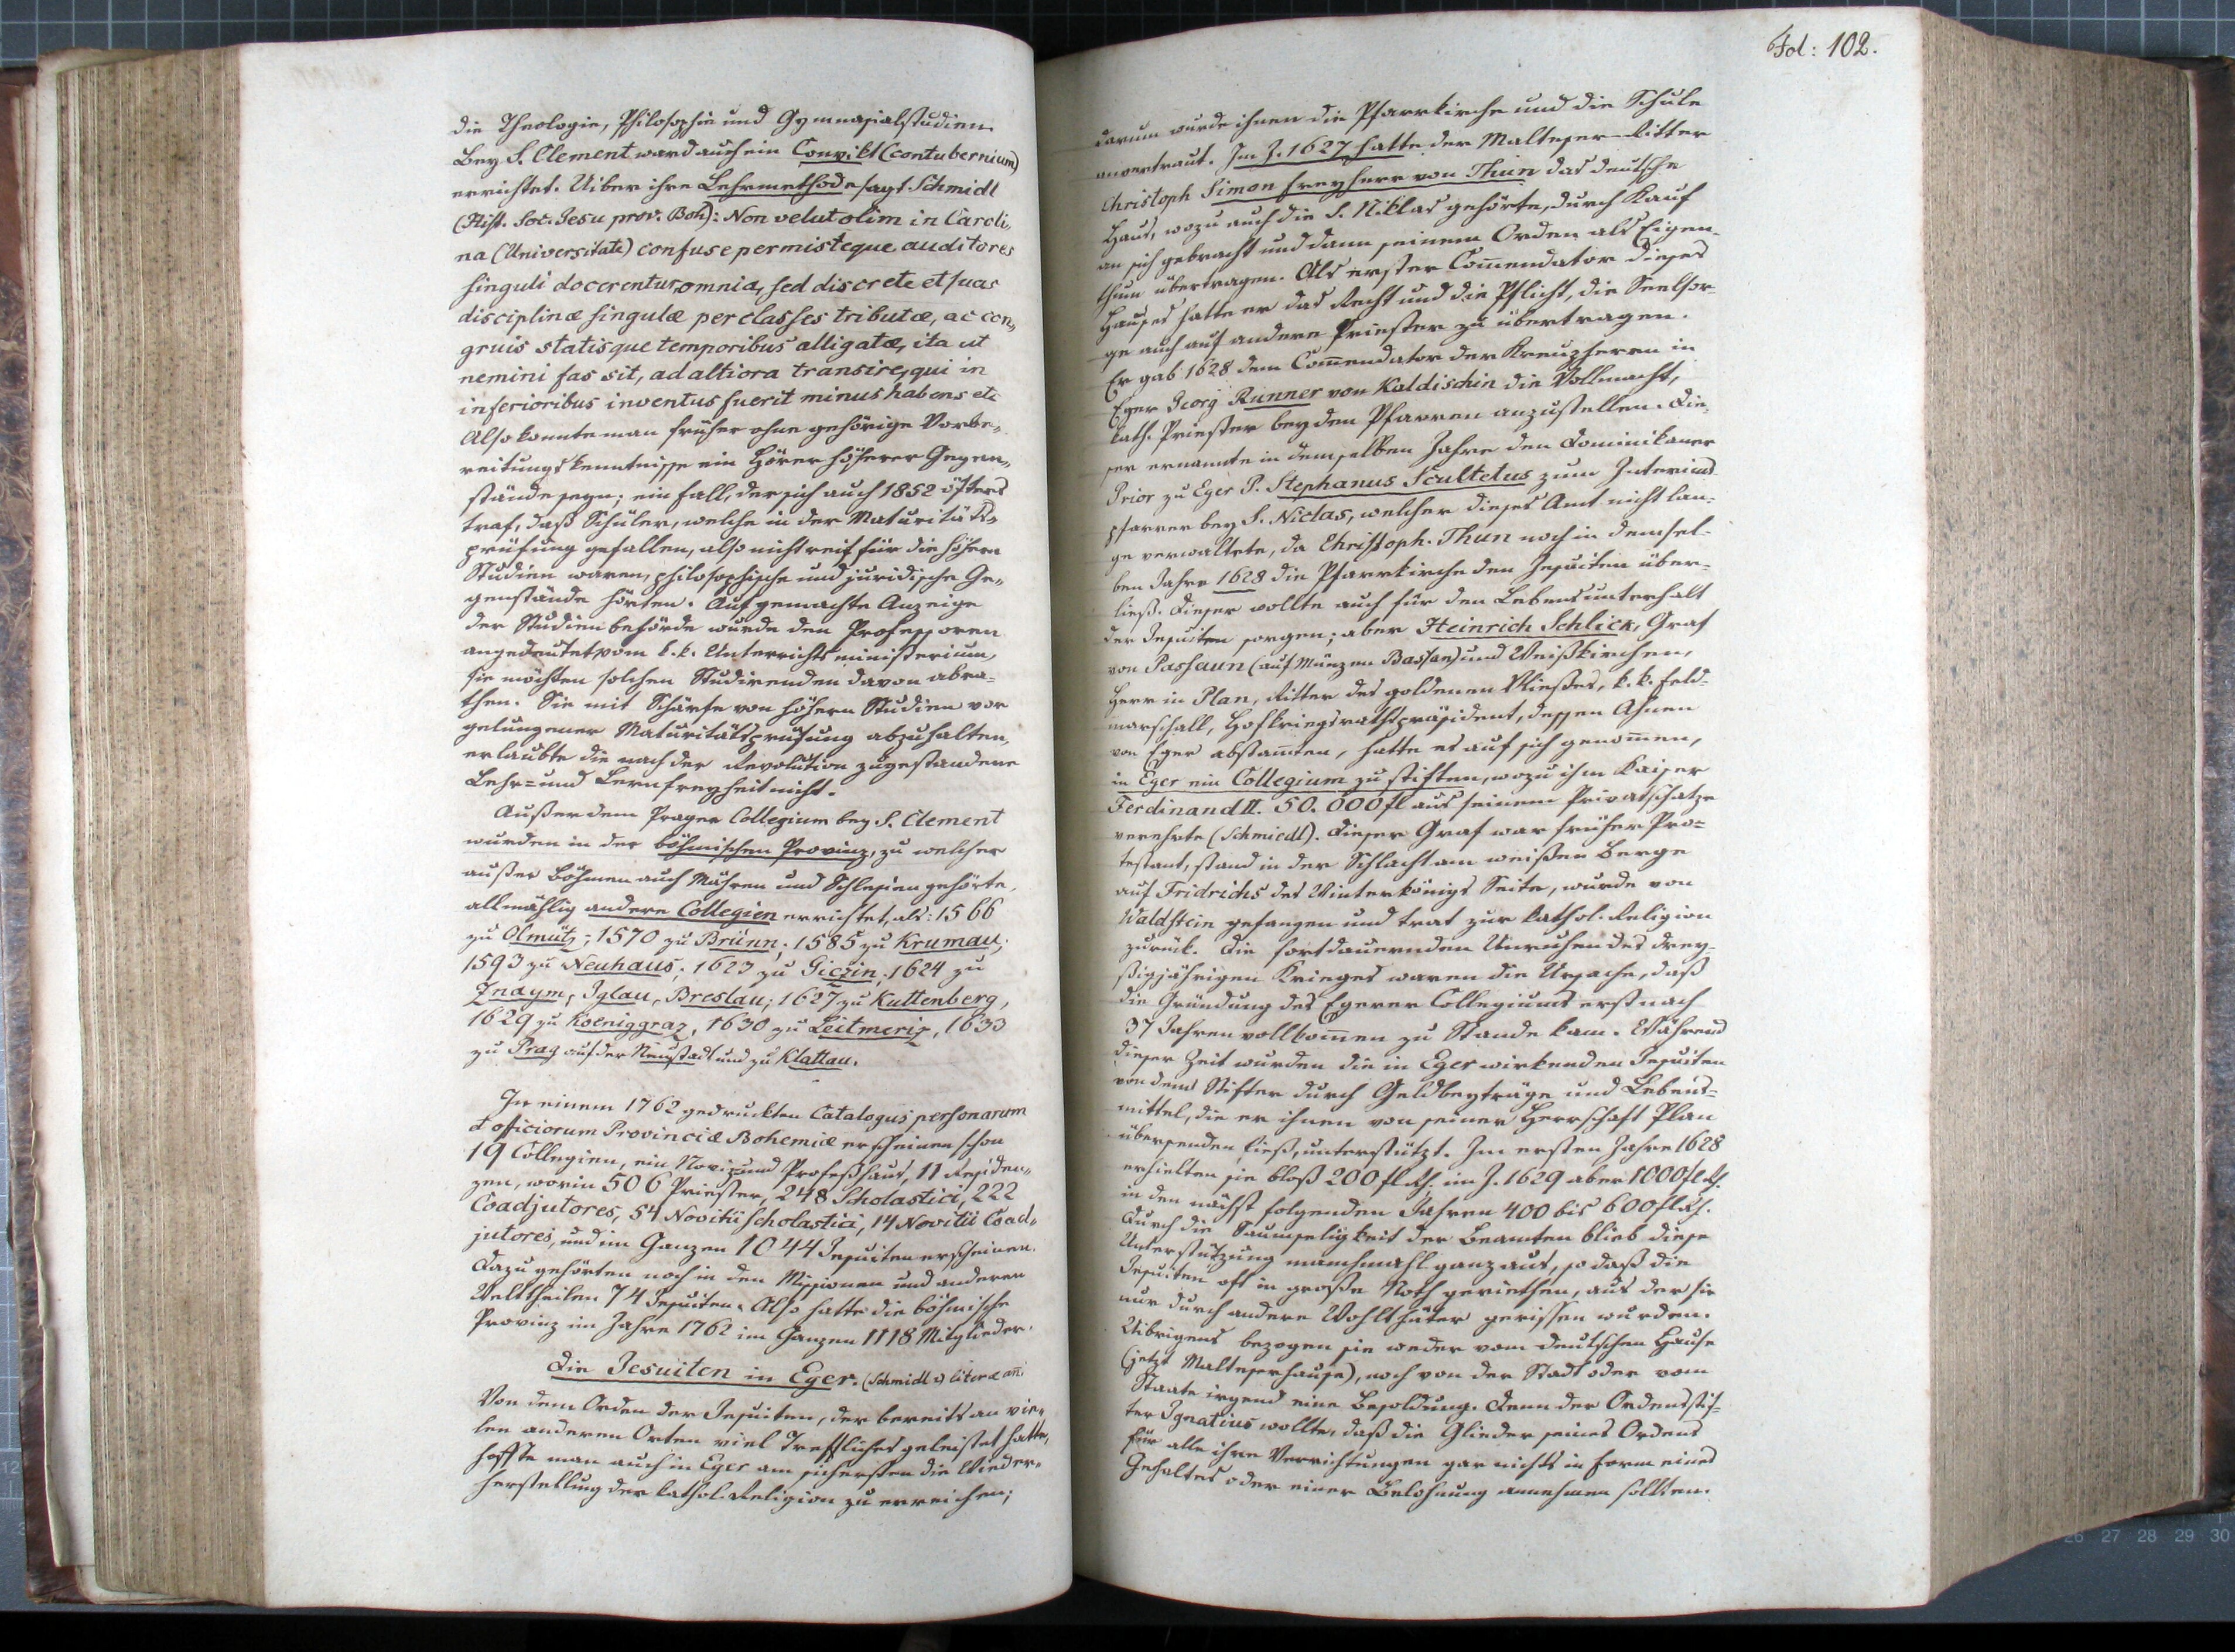 die Theologie, Philosophie und Gymnasialstudien.
Bey S. Clement ward auch ein Convikt (contubernium)
errichtet. Uiber ihre Lehrmethode sagt Schmidl
(Hist. Soc. Jesu prov. Boh): Non velut olim in Caroli„
na (Universitate) confuse permisteque auditores
singuli docerentur omnia, sed discrete et suas
disciplinæ singulæ per classes tributæ, ac con„
gruis statisque temporibus alligatæ, ita ut
nemini fas sit, ad altiora transire, qui in
inferioribus inventus fuerit minus habens etc
Also konnte man früher ohne gehörige Vorbe„
reitungskenntnisse ein Hörer höherer Gegen„
stände seyn; ein Fall, der sich auch 1852 öfters
traf, daß Schüler, welche in der Maturitäts„
prüfung gefallen, also nicht reif für die höhern
Studien waren, philosophische und juridische Ge„
genstände hörten. Auf gemachte Anzeige
der Studienbehörde wurde den Professoren
angedeutet vom k. k. Unterrichtsministerium,
sie möchten solchen Studirenden davon abra=
then. Sie mit Schärfe von höhern Studien vor
gelungener Maturitätsprüfung abzuhalten,
erlaubte die nach der Revolution zugestandene
Lehr= und Lernfreyheit nicht.
Außer dem Prager Collegium bey S. Clement
wurden in der böhmischen Provinz, zu welcher
außer Böhmen auch Mähren und Schlesien gehörte,
allmählig andere Collegien errichtet, als: 1566
zu Olmütz; 1570 zu Brünn; 1585 zu Krumau;
1593 zu Neuhaus. 1623 zu Giczin, 1624 zu
Znaym, Iglau, Breslau; 1627 zu Kuttenberg,
1629 zu Koeniggraz, 1630 zu Leitmeriz, 1633
zu Prag auf der Neustadt und zu Klattau.
In einem 1762 gedruckten Catalogus personarum
et officiorum Provinciæ Bohemiæ erscheinen schon
19 Collegien, ein Noviz= und Profeßhaus, 11 Residen„
zen, worin 506 Priester, 248 Scholastici, 222
Coadjutores, 54 Novitii Scholastici, 14 Novitii Coad„
jutores, und im Ganzen 1044 Jesuiten erscheinen.
Dazu gehörten noch in den Missionen und anderen
Welttheilen 74 Jesuiten. Also hatte die böhmische
Provinz im Jahre 1762 im Ganzen 1118 Mitglieder.
Die Jesuiten in Eger. (Schmidl literæ an̄.
Von dem Orden der Jesuiten, der bereits an vie„
len anderen Orten viel Treffliches geleistet hatte,
hoffte man auch in Eger am sichersten die Wieder„
herstellung der kathol. Religion zu erreichen;
Fol: 102.
darum wurde ihnen die Pfarrkirche und die Schule
anvertraut. Im J. 1627 hatte der Malteser-Ritter
Christoph Simon Freyherr von Thun das deutsche
Haus, wozu auch die S. Niklas gehörte, durch Kauf
an sich gebracht und dann seinem Orden als Eigen=
thum übertragen. Als erster Com̄endator dieses
Hauses hatte er das Recht und die Pflicht, die Seelsor=
ge auch auf andere Priester zu übertragen.
Er gab 1628 dem Com̄endator der Kreuzherrn in
Eger Georg Runner von Kaldischin die Vollmacht,
kath. Priester bey den Pfarren anzustellen. Die=
ser ernannte in demselben Jahre den Dominikaner
Prior zu Eger P. Stephanus Scultetus zum Interims-
pfarrer bey S. Niclas, welcher dieses Amt nicht lan=
ge verwaltete, da Christoph. Thun noch in demsel=
ben Jahre 1628 die Pfarrkirche den Jesuiten über=
ließ. Dieser wollte auch für den Lebensunterhalt
der Jesuiten sorgen; aber Heinrich Schlick, Graf
von Passaun (auf Münzen Bassan) und Weißkirchen,
Herr in Plan, Ritter des goldenen Vließes, k. k. Feld=
marschall, Hofkriegsrathspräsident, dessen Ahnen
von Eger abstam̄ten, hatte es auf sich genom̄en,
in Eger ein Collegium zu stiften, wozu ihm Kaiser
Ferdinand II. 50.000 fl aus seinem Privatschatze
verehrte (Schmiedl). Dieser Graf war früher Pro=
testant, stand in der Schlacht am weißen Berge
auf Fridrichs des Winterkönigs Seite, wurde von
Waldstein gefangen und trat zur kathol. Religion
zurück. Die fortdauernden Unruhen des drey=
ßigjährigen Krieges waren die Ursache, daß
die Gründung des Egerer Collegiums erst nach
37 Jahren vollkom̄en zu Stande kam. Während
dieser Zeit wurden die in Eger wirkenden Jesuiten
von dem Stifter durch Geldbeyträge und Lebens=
mittel, die er ihnen von seiner Herrschaft Plan
übersenden ließ, unterstützt. Im ersten Jahre 1628
erhielten sie bloß 200 fl Rh. im J. 1629 aber 1000 fl Rh.
in den nächst folgenden Jahren 400 bis 600 fl Rh.
Durch die Saumseligkeit der Beamten blieb diese
Unterstützung manchmahl ganz aus, so daß die
Jesuiten oft in große Noth geriethen, aus der sie
nur durch andere Wohlthäter gerissen wurden.
Uibrigens bezogen sie weder vom deutschen Hause
(jetzt Malteserhause), noch von der Stadt oder vom
Staate irgend eine Besoldung. Denn der Ordensstif=
ter Ignatius wollte, daß die Glieder seines Ordens
für alle ihre Verrichtungen gar nichts in Form eines
Gehaltes oder einer Belohnung annehmen sollten.
26 27 28 29 30